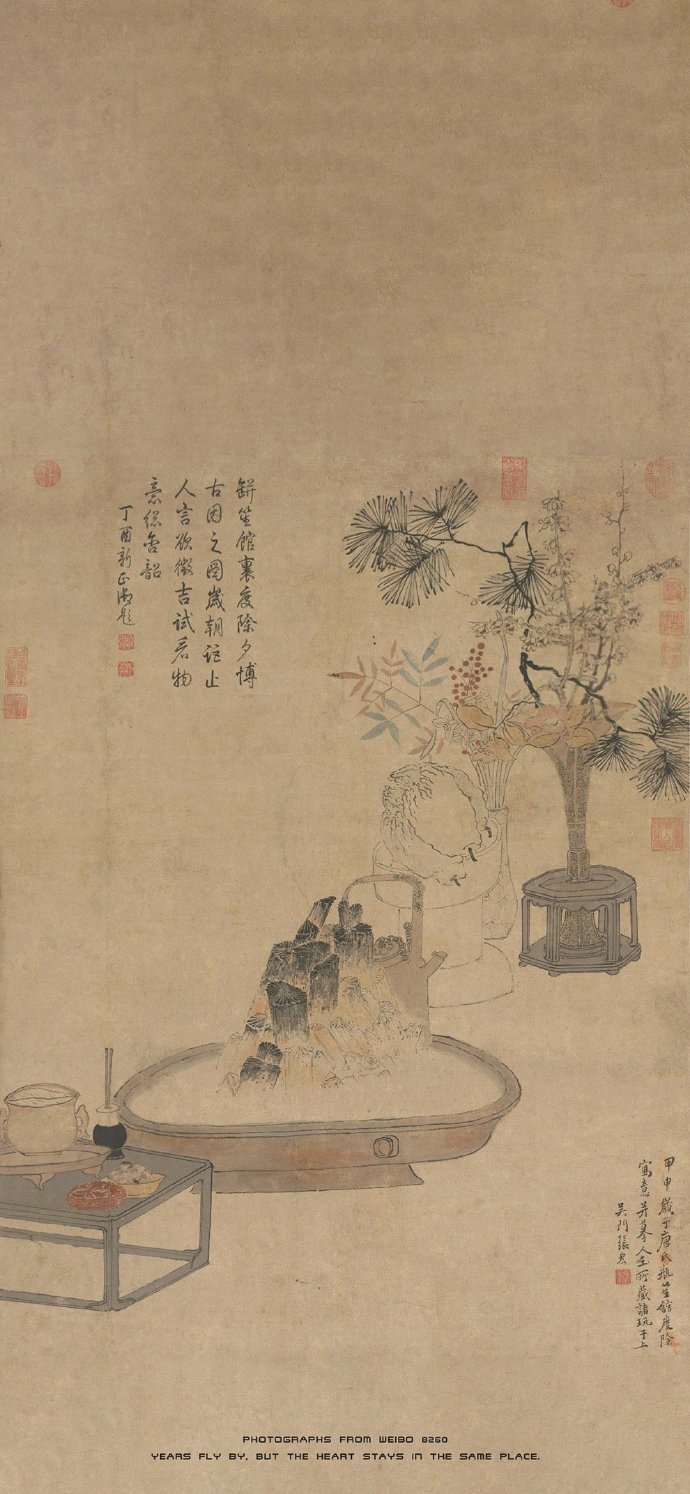 缾笙館裏度除夕博
古因之圖歲朝詎止
人言欲徵吉試看物
意總含韶
丁酉新正御題
甲申歲于唐氏瓶笙館度除
寫意并摹人主所藏諸玩于上
吳門張宏
PHOTOGRAPHS FROM WEIBO 8260
YEARS FLY BY, BUT THE HEART STAYS IN THE SAME PLACE.